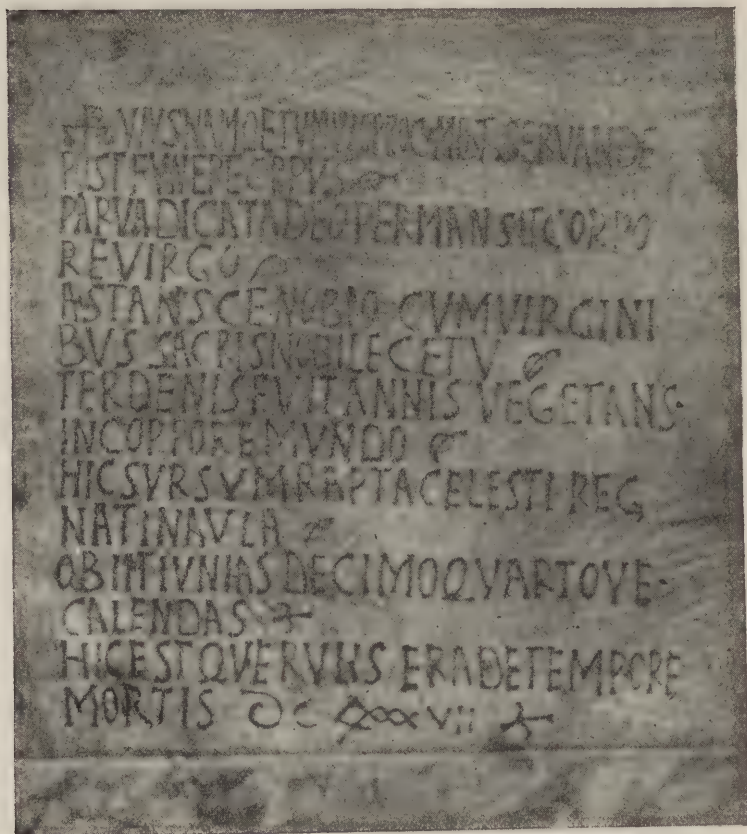 SERVANDE
POST FVNERE CORPVS
PARVA DICATA DEO PERMANSIT CORPO
RE VIRGO
ASTANS CENOBIO CVM VIRGINI
BVS SACRIS NOBILE CETV
TER DENIS FVIT ANNIS VEGETANS
IN CORPORE MVNDO
HIC SVRSVM RAPTA CELESTI REG
NAT IN AVLA
OBIIT IVNIAS DECIMO QVARTO VE
CALENDAS
HIC EST QVERVLIS ERA DE TEMPORE
MORTIS